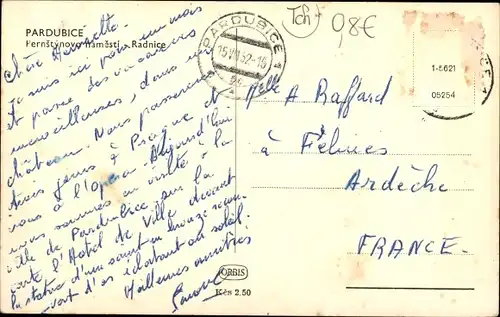 PARDUBICE
Fernštýnovo náměstí - Radnice
Chère Henriette
Je suis ici pour un mois
et passe des vacances
merveilleuses, dans un
château. Nous passerons
trois jours à Prague et
irons à l'opéra. Aujourd'hui
nous sommes en visite à la
ville de Pardubice sur la
carte l'Hôtel de Ville devant
la statue d'un saint en bronze
vert d'or éclatant au soleil.
Meilleures amitiés
PARDUBICE 1
15.VII.62-15
Tch
0,8€
1-6621
05254
Melle A Raffard
à Félines
Ardèche
FRANCE.
ORBIS
Kčs 2.50